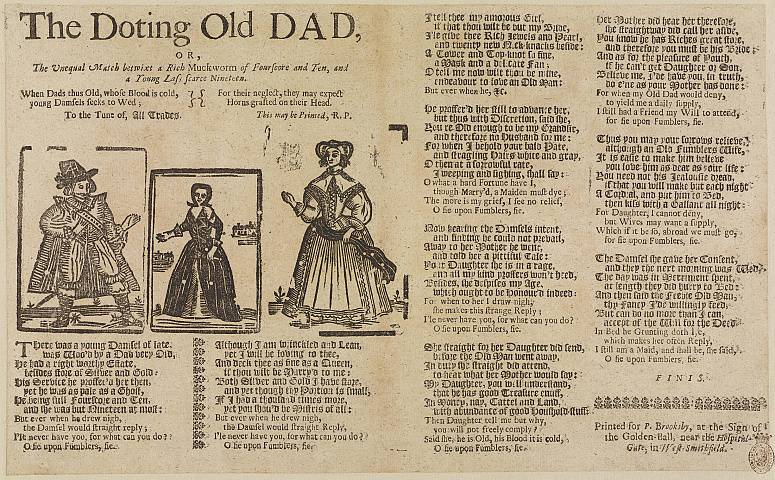 The Doting Old DAD,
OR,
The Unequal Match betwixt a Rich Muckworm of Fourscore and Ten, and
a Young Lass scarce Nineteen.
When Dads thus Old, whose Blood is cold,
young Damsels seeks to Wed;
For their neglect, they may expect
Horns grafted on their Head.
To the Tune of, All Trades.
This may be Printed, R. P.
There was a young Damsel of late,
was Woo'd by a Dad very Old,
He had a right worthy Estate,
besides store of Silver and Gold:
His Service he proffer'd her then,
yet he was as pale as a Ghost,
He being full Fourscore and Ten,
and she was but Nineteen at most:
But ever when he drew nigh,
the Damsel would straight reply;
I'le never have you, for what can you do??
O fie upon Fumblers, fie.
Although I am wrinckled and Lean,
yet I will be loving to thee,
And deck thee as fine as a Queen,
if thou wilt be Marry'd to me:
Both Silver and Gold I have store,
and yet though thy Portion is small,
If I had a thousand times more,
yet you should be Mistris of all:
But ever when he drew nigh,
the Damsel would straight Reply,
I'le never have you, for what can you do??
O fie upon Fumblers, fie.
I tell thee my amorous Girl,
if that thou wilt be but my Bride,
I'le give thee Rich Jewels and Pearl,
and twenty new Nick-knacks beside:
A Tower and Top-knot so fine,
a Mask and a delicate Fan;
O tell me now wilt thou be mine,
endeavour to love an Old man:
But ever when he, &c.
He proffer'd her still to advance her,
but thus with Discretion, said she,
You're Old enough to be my Grandsir,
and therefore no Husband for me:
For when I behold your bald Pate,
and stragling Hairs white and gray,
O then at a sorrowful rate,
I weeping and sighing, shall say:
O what a hard Fortune have I,
though Marry'd, a Maiden must dye;
The more is my grief, I see no relief,
O fie upon Fumblers, fie.
Now hearing the Damsels intent,
and finding he could not prevail,
Away to her Mother he went,
and told her a pittiful Tale:
Your Daughter she is in a rage,
and all my kind proffers won't heed,
Besides, she despises my Age,
which ought to be Honour'd indeed:
For when to her I draw nigh,
she makes this strange Reply;
I'le never have you, for what can you do??
O fie upon Fumblers, fie.
She straight for her Daughter did send,
before the Old Man went away,
In duty she straight did attend,
to hear what her Mother would say:
My Daughter, you will understand,
that he has good Treasure enuff,
In Money, nay, Cattel and Land,
with abundance of good Houshold-stuff:
Then Daughter tell me but why,
you will not freely comply?
Said she, he is Old, his Blood it is cold,
O fie upon Fumblers, fie.
Her Mother did hear her therefore,
she straightway did call her aside,
You know he has Riches great store,
and therefore you must be his Bride:
And as for the pleasure of Youth,
if he can't get Daughter or Son,
Believe me, I'de have you, in truth,
do e'ne as your Mother has done:
For when my Old Dad would deny,
to yield me a daily supply,
I still had a Friend my Will to attend,
for fie upon Fumblers, fie.
Thus you may your sorrows relieve,
although an Old Fumblers Wife,
It is easie to make him believe
you love him as dear as your life:
You need not his Jealousie dread,
if that you will make but each night
A Cordial, and put him to Bed,
then kiss with a Gallant all night:
For Daughter, I cannot deny,
but Wives may want a supply,
Which if it be so, abroad we must go,
for fie upon Fumblers, fie.
The Damsel she gave her Consent,
and they the next morning was Wed,
The day was in Merriment spent,
at length they did hurry to Bed:
And then said the Feeble Old Man,
thy Fancy I'de willingly feed,
But can do no more than I can,
accept of the Will for the Deed:
In Bed he Grunting doth lye,
which makes her often Reply,
I still am a Maid, and shall be, she said,
O fie upon Fumblers, fie.
FINIS.
Printed for P. Brooksby, at the Sign of
the Golden-Ball, near the Hospital-
Gate, in West-Smithfield.